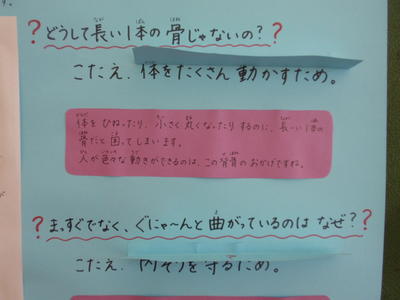 ?どうして長い1本の骨じゃないの??
こたえ.体をたくさん動かすため。
体をひねったり、小さく丸くなったりするのに、長〜い1本の
骨だと困ってしまいます。
人が色々な動きができるのは、この背骨のおかげですね。
?まっすぐでなく、ぐにゃ〜んと曲がっているのはなぜ??
こたえ.内ぞうを守るため。